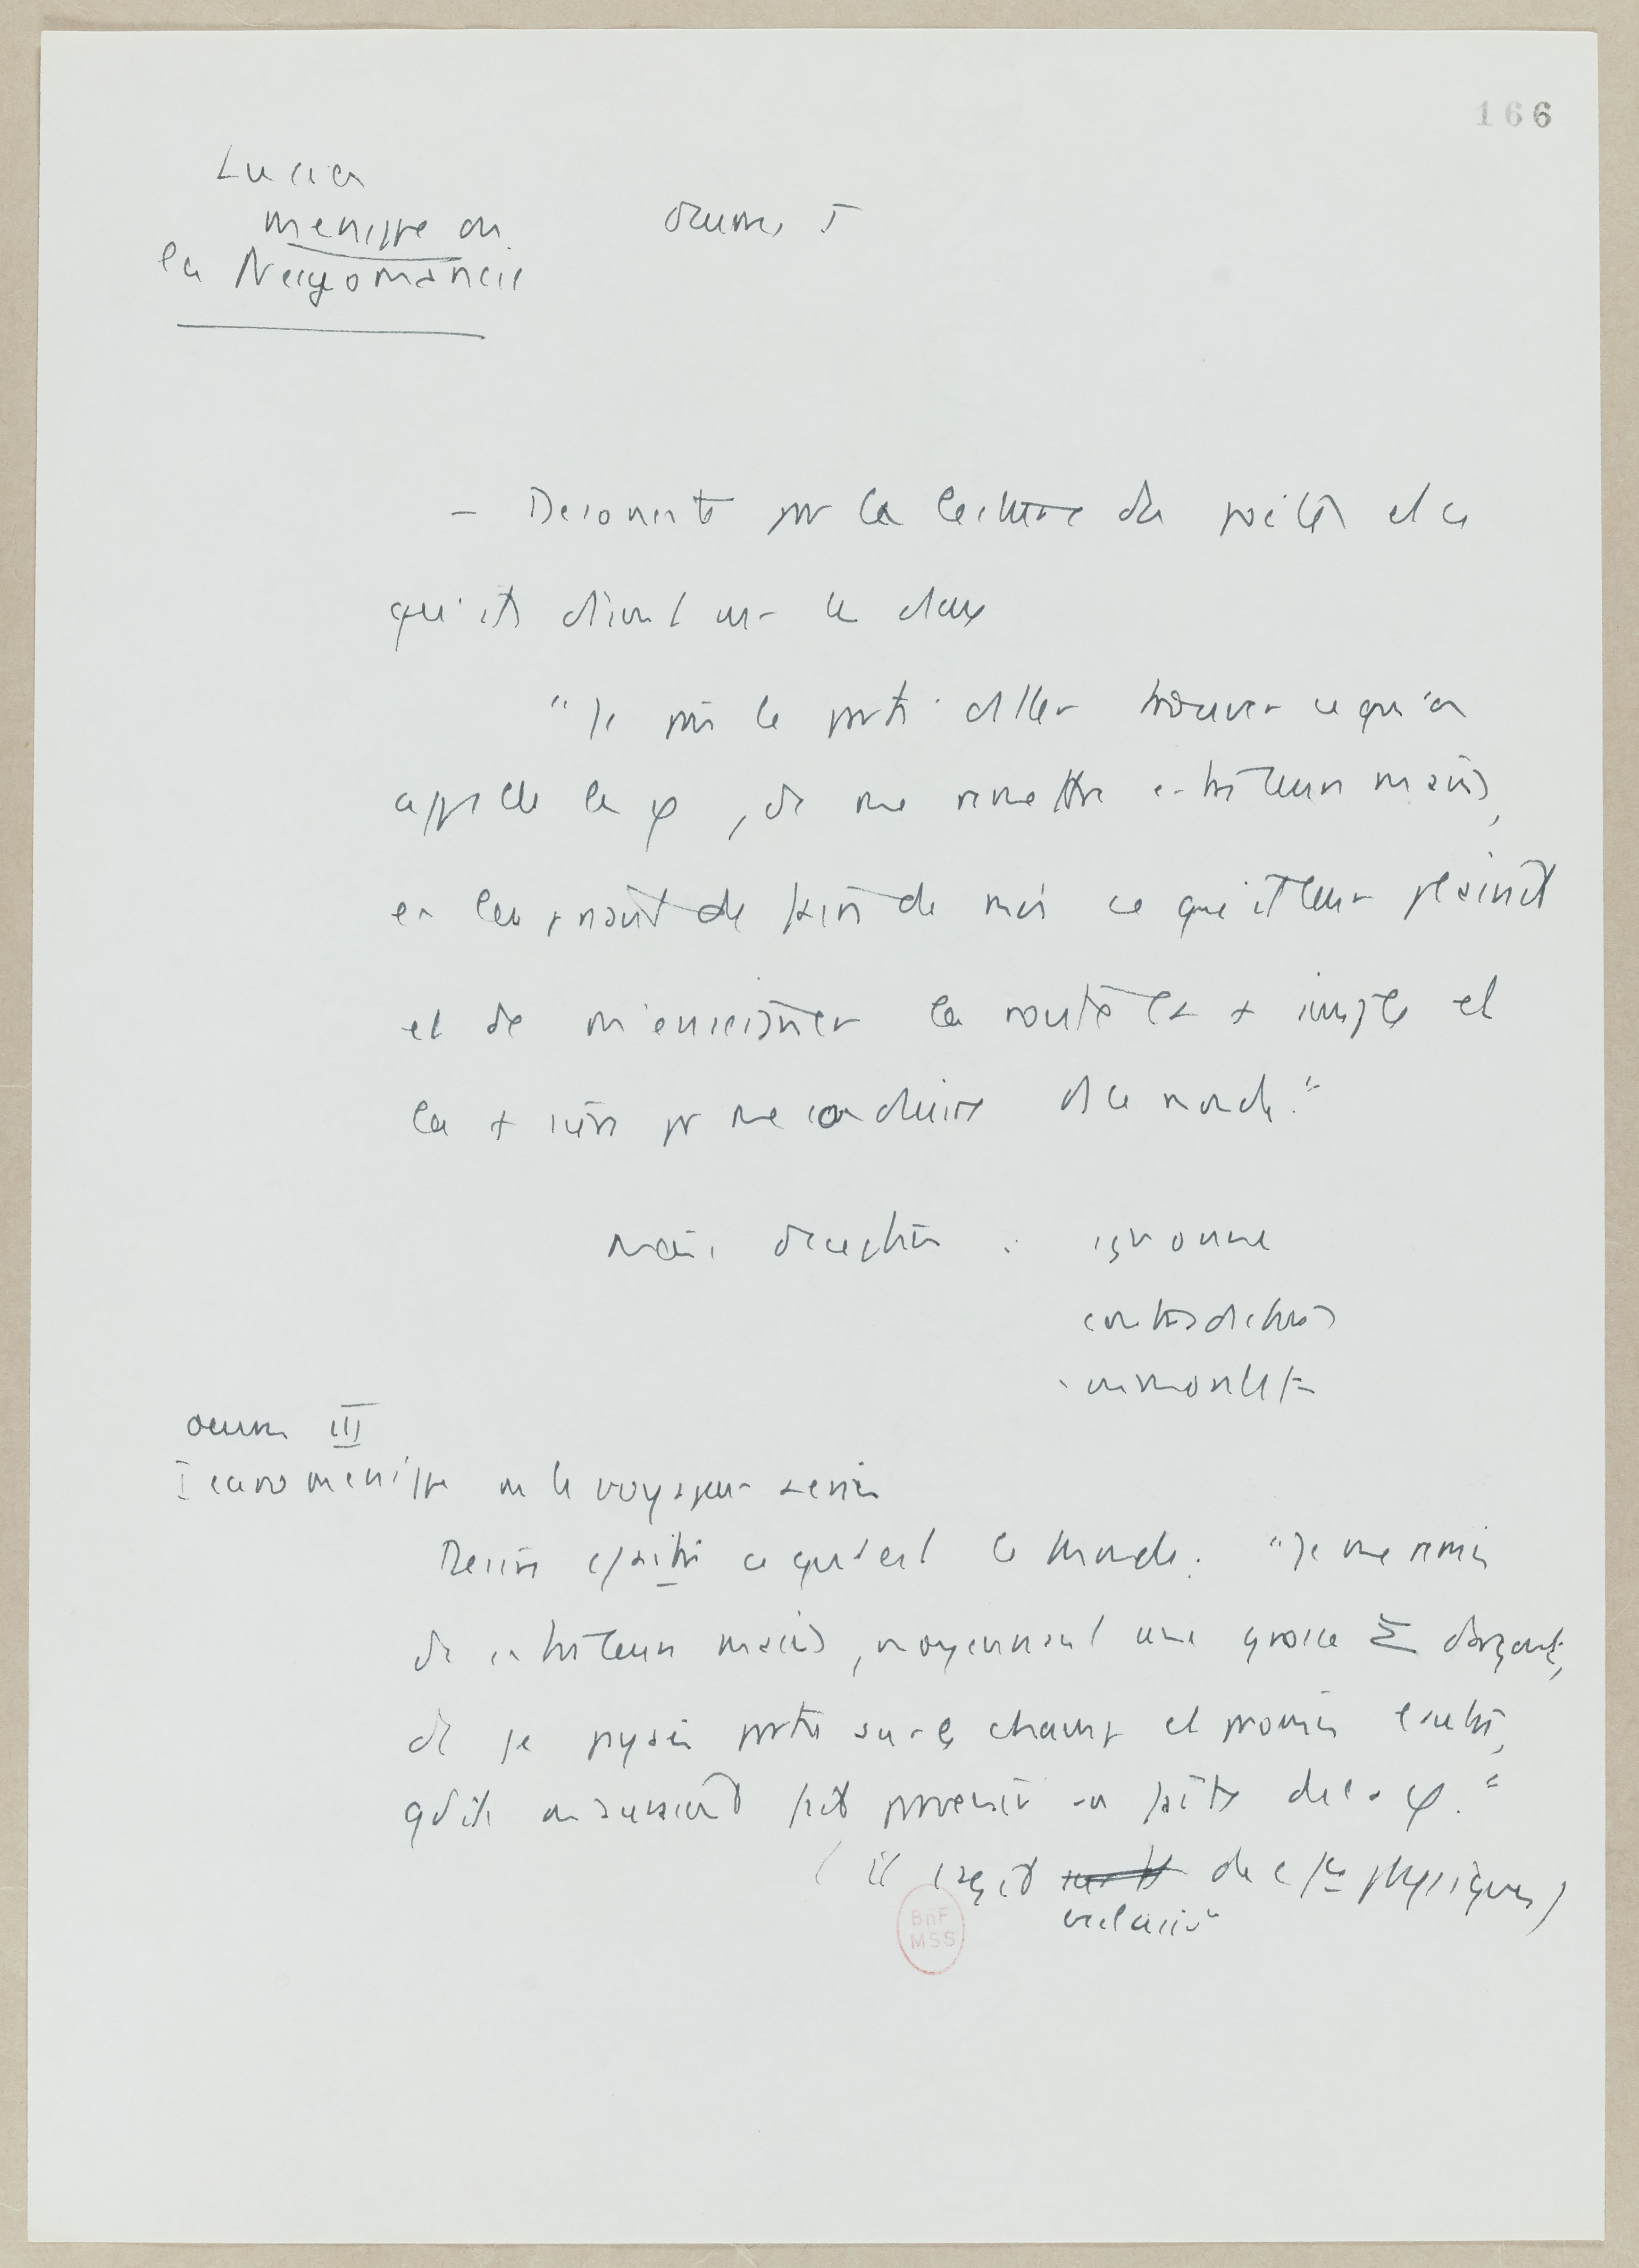 166
Lucien
Menippe ou
la Necyomancie
Oeuvres I
- Déconcerté par la lecture des poètes et ce
qu'ils disent sur les dieux
"Je pris le parti d'aller trouver ce qu'on
appelle les φ, de me remettre entre leurs mains,
en les priant de faire de moi ce qu'il leur plairait
et de m'enseigner la route la + simple et
la + sûre pr me conduire ds le monde."
Mais déception : ignorance
contradictions
immoralité
Oeuvres III
Icaroménippe ou le voyage aérien
Désire connaître ce qu'est le monde. "Je me remis
dc entre leurs mains, moyennant une grosse Σ d'argent,
dt je payai partie sur le champ et promis l'autre,
qd ils m'auraient fait parvenir au faîte de la φ."
(il s'agit de physiques)
BnF
MSS